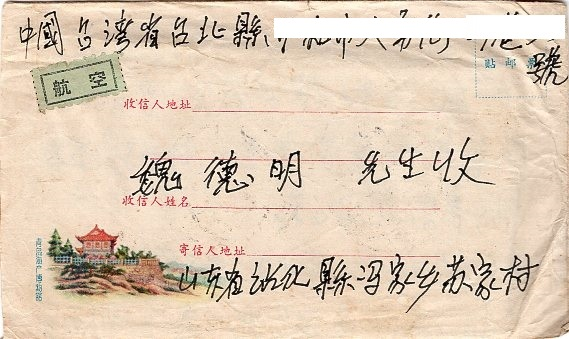 中國台湾省台北縣
號
航空
贴邮票处
收信人地址
魏德明 先生收
收信人姓名
寄信人地址
山东省沾化縣冯家乡苏家村